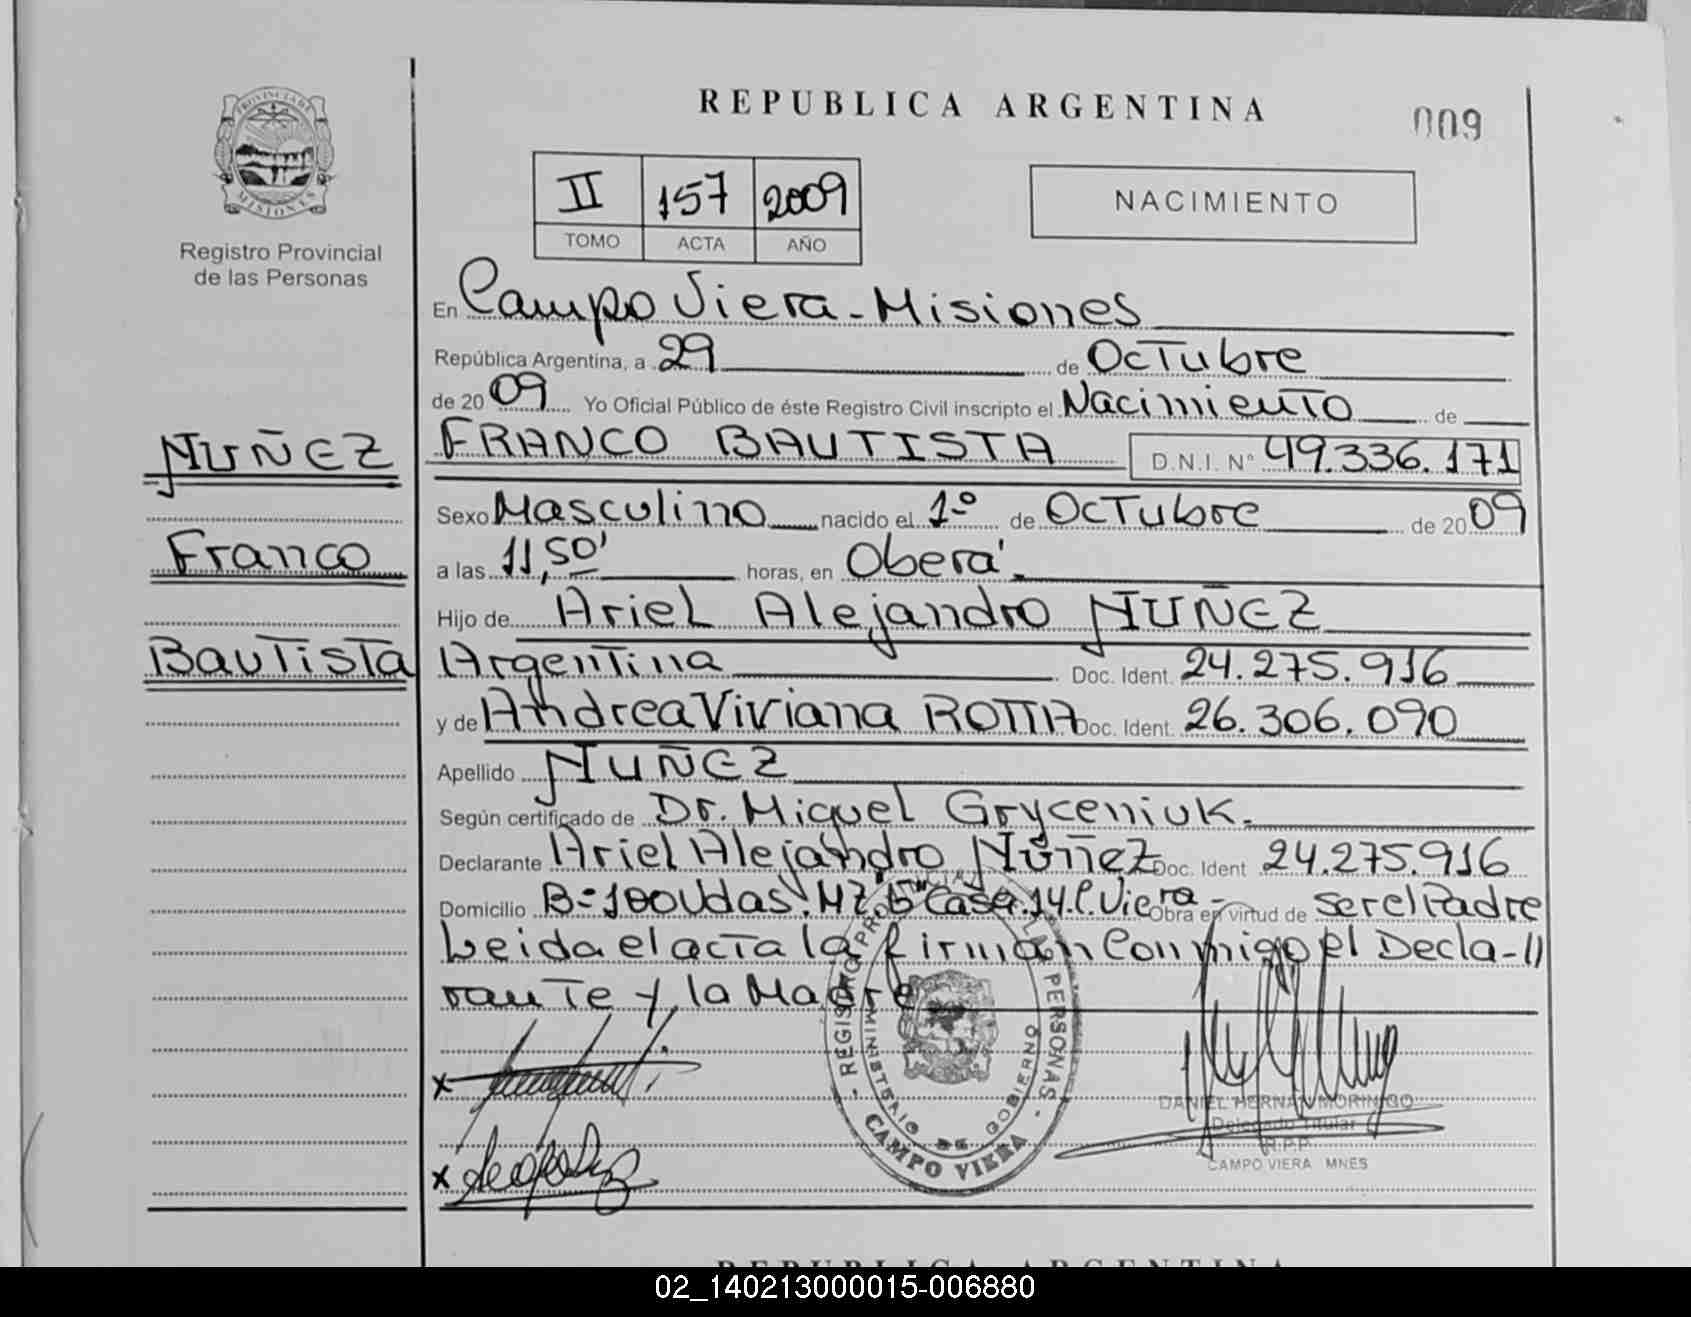 REPUBLICA ARGENTINA
009
PROVINCIA DE
MISIONES
Registro Provincial
de las Personas
II 157 2009
TOMO ACTA AÑO
NACIMIENTO
En Campo Viera - Misiones
República Argentina, a 29 de Octubre
de 2009 Yo Oficial Público de éste Registro Civil inscripto el Nacimiento de
NUÑEZ
Franco
Bautista
FRANCO BAUTISTA D.N.I. N° 49.336.171
Sexo Masculino nacido el 1º de Octubre de 2009
a las 11,50' horas, en Oberá.
Hijo de Ariel Alejandro NUÑEZ
Argentina Doc. Ident. 24.275.916
y de Andrea Viviana ROTTA Doc. Ident. 26.306.090
Apellido NUÑEZ
Según certificado de Dr. Miguel Gryceniuk.
Declarante Ariel Alejandro Núñez Doc. Ident 24.275.916
Domicilio B= 100 Vdas. Mz. 5 Casa 14. C. Viera - Obra en virtud de ser el Padre
Leida el acta la firman Conmigo el Decla-//
rante y la Madre
x
x
REGISTRO PROVINCIAL PERSONAS
MINISTERIO DE GOBIERNO
- CAMPO VIERA -
DANIEL HERNAN MORINIGO
Delegado Titular
R.P.P.
CAMPO VIERA MNES
REPUBLICA ARGENTINA
02_140213000015-006880